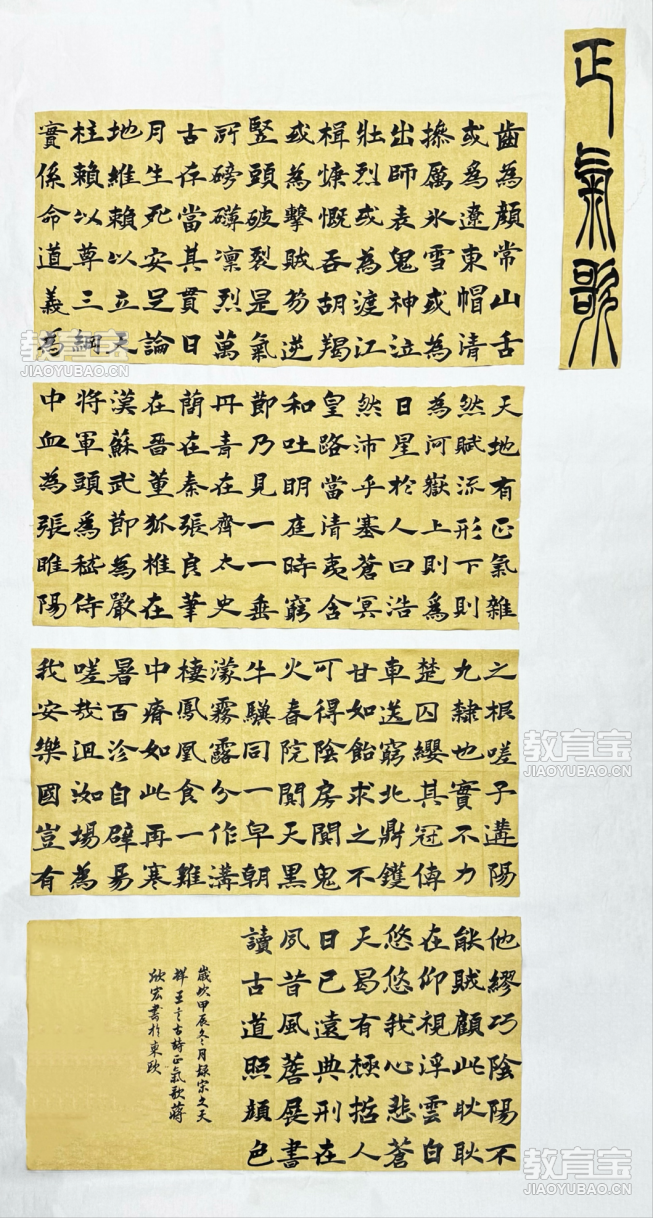 正氣歌
齒為顏常山舌
或為遼東帽清
操厲冰雪或為
出師表鬼神泣
壯烈或為渡江
楫慷慨吞胡羯
或為擊賊笏逆
豎頭破裂是氣
所磅礴凜烈萬
古存當其貫日
月生死安足論
地維賴以立天
柱賴以尊三綱
實係命道義為
天地有正氣雜
然賦流形下則
為河嶽上則為
日星於人曰浩
然沛乎塞蒼冥
皇路當清夷含
和吐明庭時窮
節乃見一一垂
丹青在齊太史
簡在秦張良筆
在晉董狐椎在
漢蘇武節為嚴
將軍頭為嵇侍
中血為張睢陽
之根嗟予遘陽
九隸也實不力
楚囚纓其冠傳
車送窮北鼎鑊
甘如飴求之不
可得陰房闃鬼
火春院閟天黑
牛驥同一皁朝
濛霧露分作溝
棲鳳凰食一雞
中瘠如此再寒
暑百沴自辟易
嗟哉沮洳場為
我安樂國豈有
他繆巧陰陽不
能賊顧此耿耿
在仰視浮雲白
悠悠我心悲蒼
天曷有極哲人
日已遠典刑在
夙昔風簷展書
讀古道照顏色
歲次甲辰冬月録宋文天
祥五言古詩正氣歌蔣
欣宏書於東歐
教育宝
JIAOYUBAO.CN
教育宝
JIAOYUBAO.CN
教育宝
JIAOYUBAO.CN